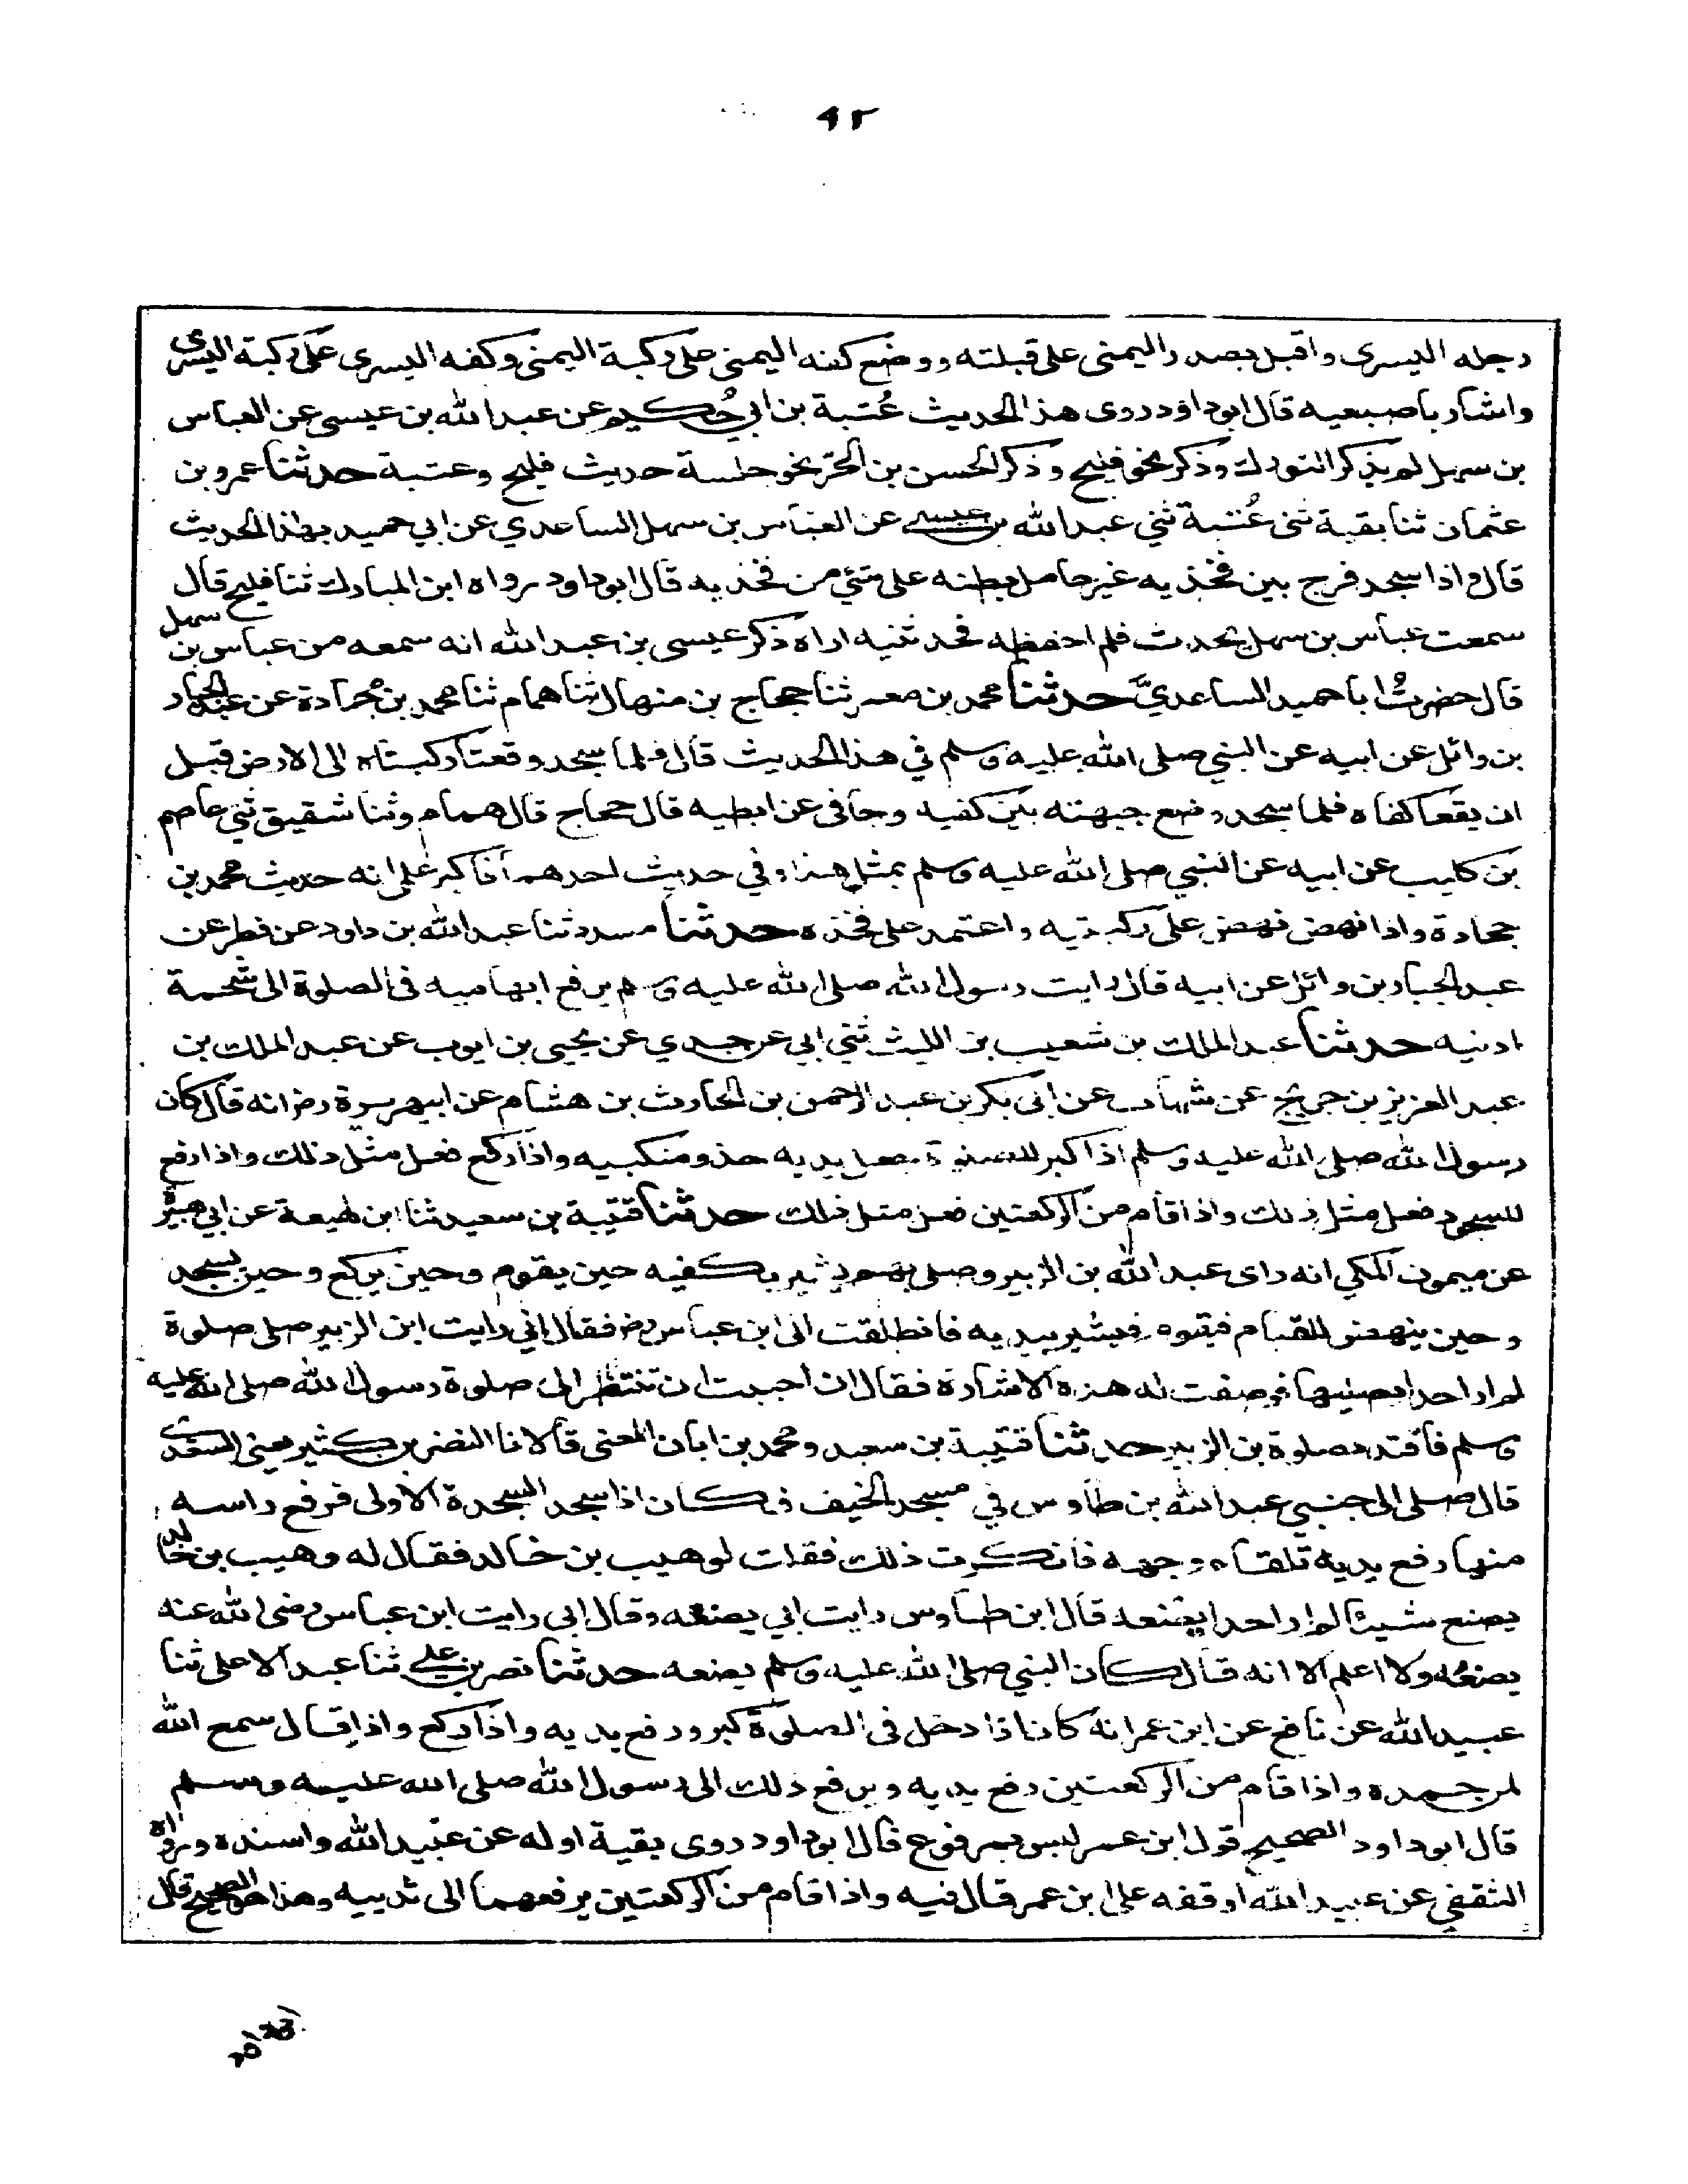 ٩٢
رجله اليسرى واقبل بصدر اليمنى على قبلته ووضع كفه اليمنى على ركبة اليمنى وكفه اليسرى على ركبة اليسرى
واشار باصبعيه قال ابوداود روى هذا الحديث عُتبة بن ابي حُكيم عن عبدالله بن عيسى عن العباس
بن سهل لم يذكر التورك وذكر نحو فليح وذكر الحسن بن الحر نحو جلسة حديث فليح وعتبة حدثنا عمرو بن
عثمان ثنا بقية ثنى عُتبة ثني عبدالله بن عيسى عن العباس بن سهل الساعدي عن ابي حميد بهذا الحديث
قال واذا سجد فرج بين فخذيه غير حامل بطنه على شئ من فخذيه قال ابوداود رواه ابن المبارك ثنا فليح قال
سمعت عباس بن سهل يحدث فلم احفظه فحدثنيه اراه ذكر عيسى بن عبدالله انه سمعه من عباس بن سهل
قال حضرتُ ابا حميد الساعديَّ حدثنا محمد بن معمر ثنا حجاج بن منهال ثنا همام ثنا محمد بن حجادة عن عبد الجبار
بن وائل عن ابيه عن النبي صلى الله عليه وسلم في هذا الحديث قال فلما سجد وقعتا ركبتاه الى الارض قبل
ان يقعا كفاه فلما سجد وضع جبهته بين كفيه وجافى عن ابطيه قال حجاج قال همام وثنا شقيق ثني عاصم
بن كليب عن ابيه عن النبي صلى الله عليه وسلم بمثل هذا وفي حديث احدهما فاكبر علمي انه حديث محمد بن
جحادة واذا نهض نهض على ركبتيه واعتمد على فخذه حدثنا مسدد ثنا عبدالله بن داود عن فطر عن
عبد الجبار بن وائل عن ابيه قال رايت رسول الله صلى الله عليه وسلم يرفع ابهاميه في الصلوة الى شحمة
اذنيه حدثنا عبد الملك بن شعيب بن الليث ثني ابي عن جدي عن يحيى بن ايوب عن عبد الملك بن
عبد العزيز بن جريج عن شهاب عن ابى بكر بن عبد الرحمن بن الحارث بن هشام عن ابيهريرة رض انه قال كان
رسول الله صلى الله عليه وسلم اذا كبر للصلوة جعل يديه حذو منكبيه واذا ركع فعل مثل ذلك واذا رفع
للسجود فعل مثل ذلك واذا قام من الركعتين فعل مثل ذلك حدثنا قتيبة بن سعيد ثنا ابن لهيعة عن ابي هبيرة
عن ميمون المكي انه راى عبد الله بن الزبير وصلى بهم يشير بكفيه حين يقوم وحين يركع وحين يسجد
وحين ينهض للقيام فيقوم فيشير بيديه فانطلقت الى ابن عباس رض فقال اني رايت ابن الزبير صلى صلوة
لم ار احدا يصليها فوصفت له هذه الاشارة فقال ان احببت ان تنتظر الى صلوة رسول الله صلى الله عليه
وسلم فاقتد بصلوة بن الزبير حدثنا قتيبة بن سعيد ومحمد بن ابان المعنى قالا نا النضر بن كثير يعني السعدي
قال صلى الى جنبي عبد الله بن طاوس في مسجد الخيف فكان اذا سجد السجدة الاولى فرفع راسه
منها رفع يديه تلقاء وجهه فانكرت ذلك فقلت لوهيب بن خالد فقال له وهيب بن خالد
يصنع شيئا لم ار احدا يصنعه قال ابن طاوس رايت ابي يصنعه وقال ابي رايت ابن عباس رضى الله عنه
يصنعه ولا اعلم الا انه قال كان النبي صلى الله عليه وسلم يصنعه حدثنا نصر بن علي ثنا عبد الاعلى ثنا
عبيدالله عن نافع عن ابن عمر انه كان اذا دخل فى الصلوة كبر ورفع يديه واذا ركع واذا قال سمع الله
لمن حمده واذا قام من الركعتين رفع يديه ويرفع ذلك الى رسول الله صلى الله عليه وسلم
قال ابوداود الصحيح قول ابن عمر ليس بمرفوع قال ابوداود روى بقية اوله عن عبيدالله واسنده ورواه
الثقفي عن عبيدالله اوقفه على ابن عمر قال فيه واذا قام من الركعتين يرفعهما الى ثدييه وهذا هو الصحيح قال